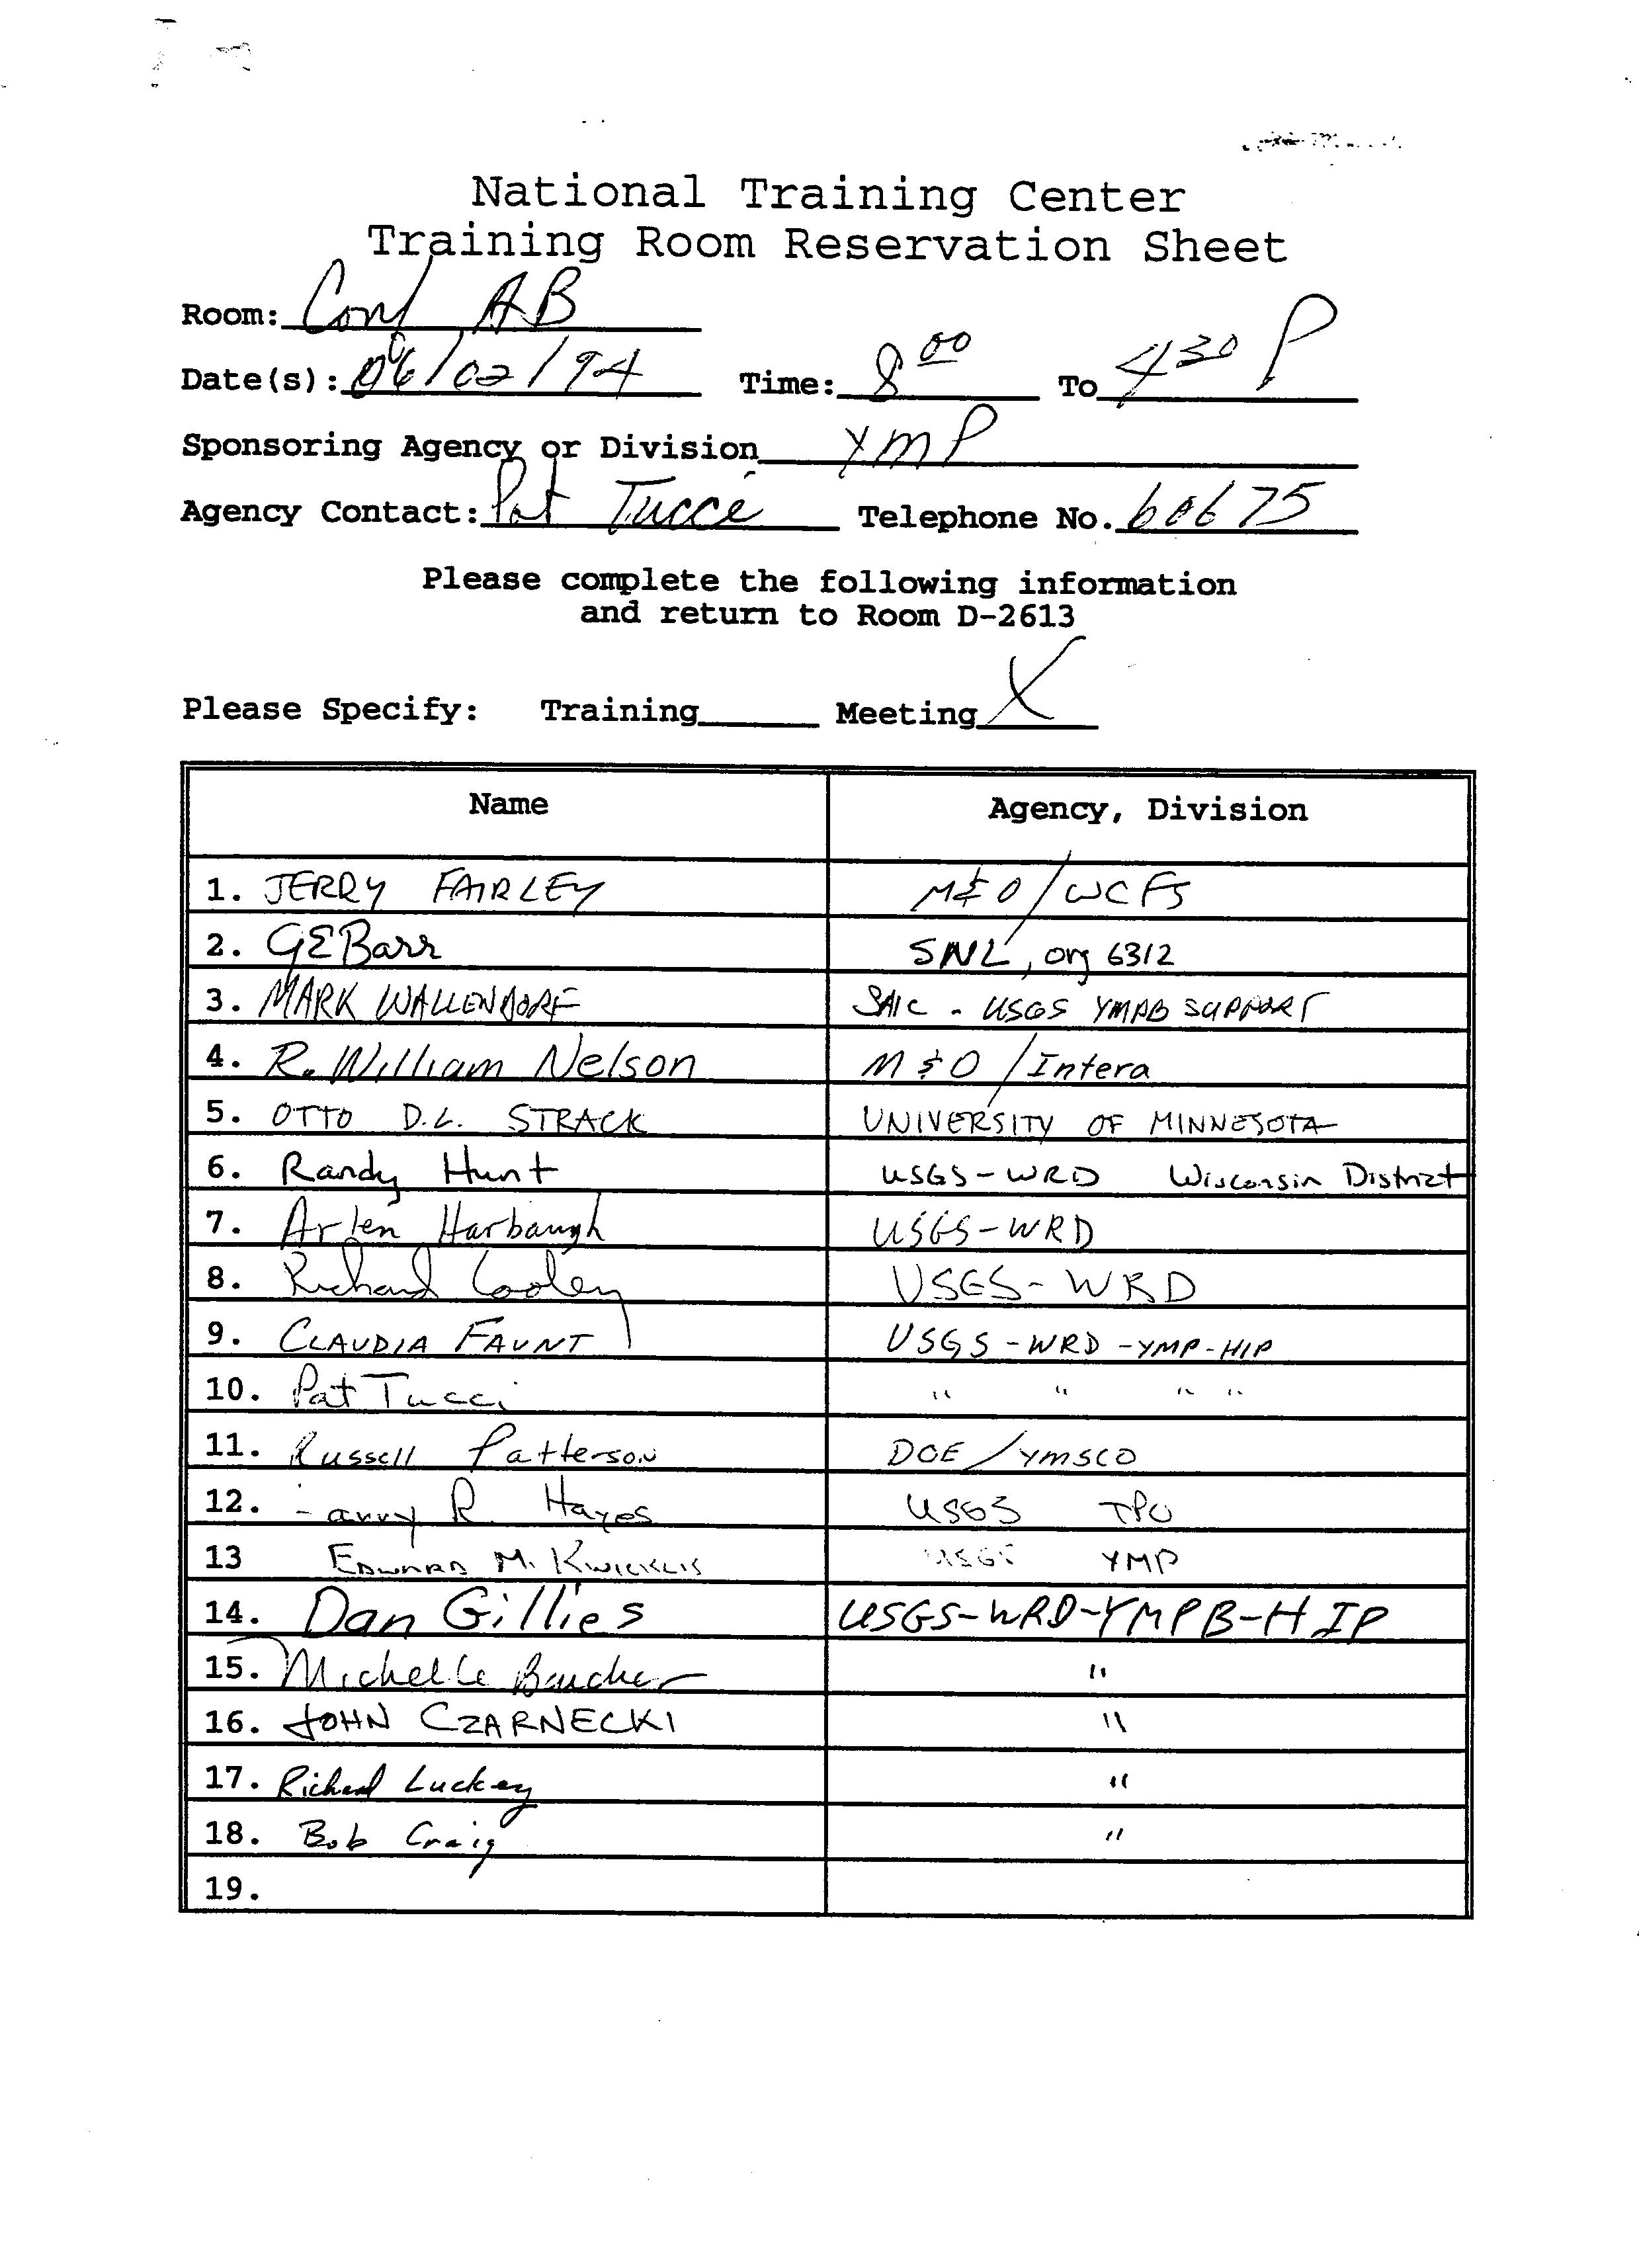 National Training Center
Training Room Reservation Sheet
Room: Conf AB
Date(s): 06/02/94 Time: 8 00 To 4 30 P
Sponsoring Agency or Division YMP
Agency Contact: Pat Tucci Telephone No. 60675
Please complete the following information
and return to Room D-2613
Please Specify: Training Meeting X
Name Agency, Division
1. JERRY FAIRLEY M&O/WCFS
2. GE Barr SNL, org 6312
3. MARK WALLENDORF SAIC - USGS YMPB SUPPORT
4. R. William Nelson M & O / Intera
5. OTTO D.L. STRACK UNIVERSITY OF MINNESOTA
6. Randy Hunt USGS-WRD Wisconsin District
7. Arlen Harbaugh USGS-WRD
8. Richard Cooley USGS-WRD
9. CLAUDIA FAUNT USGS-WRD-YMP-HIP
10. Pat Tucci " " " "
11. Russell Patterson DOE/YMSCO
12. Larry R. Hayes USGS TPO
13 EDWARD M. KWICKLIS USGS YMP
14. Dan Gillies USGS-WRD-YMPB-HIP
15. Michelle "
16. JOHN CZARNECKI "
17. Richard Luckey "
18. Bob Craig "
19.